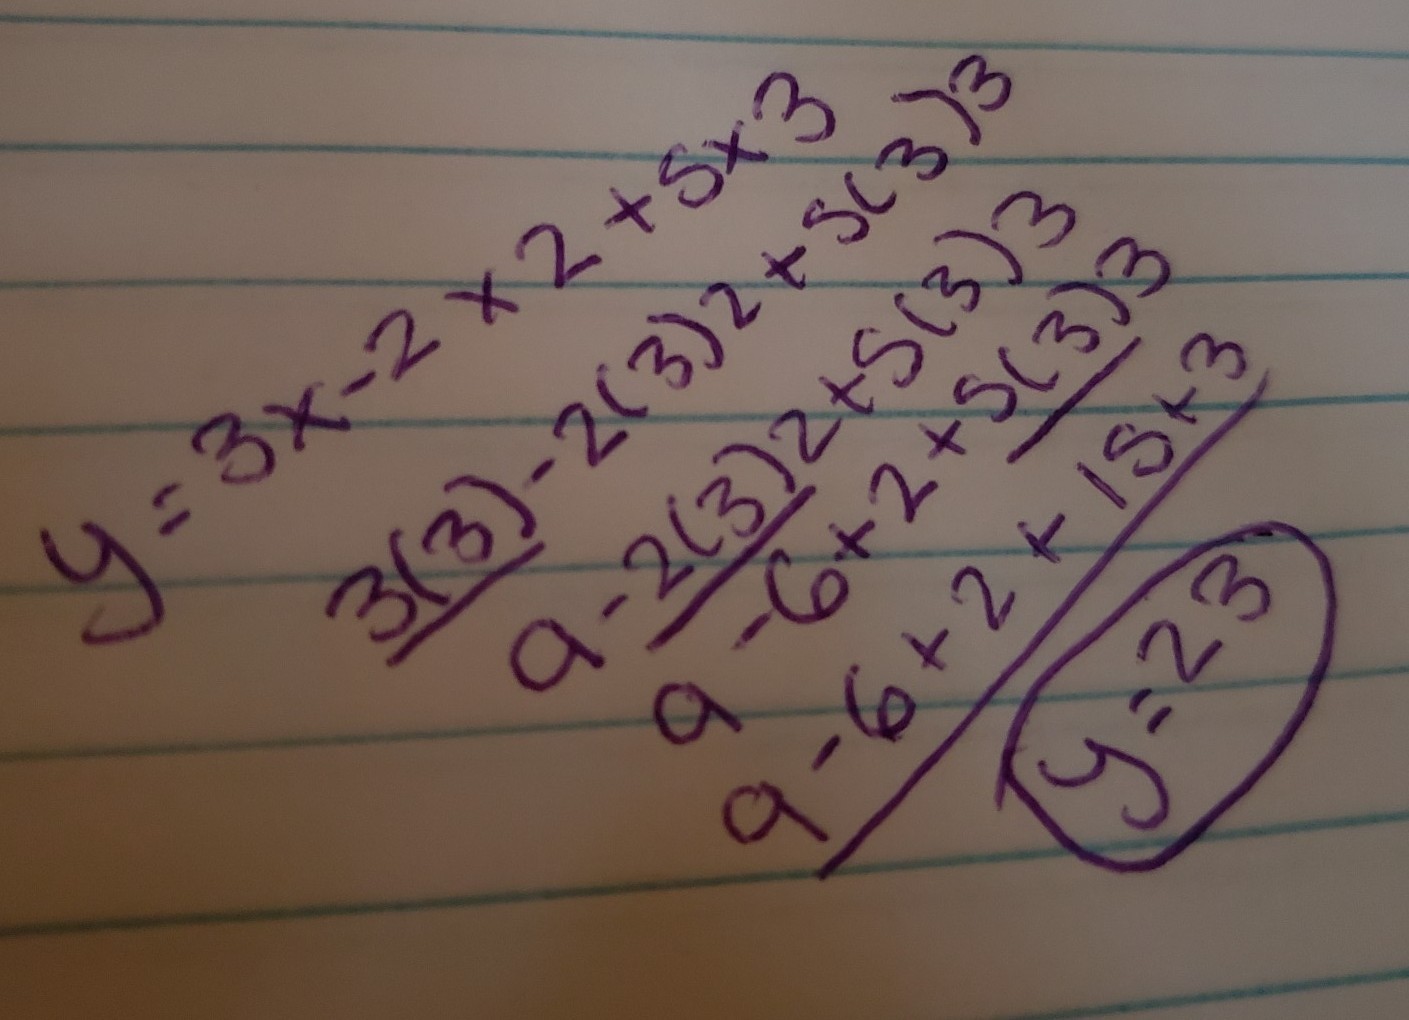 y = 3x - 2 x 2 + 5x3
3(3) - 2(3)2 + 5(3)3
9 - 2(3)2 + 5(3)3
9 - 6 + 2 + 5(3)3
9 - 6 + 2 + 15 + 3
y = 23